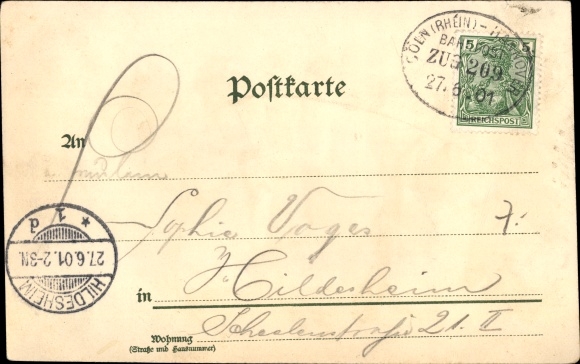 CÖLN (RHEIN) - HANNOVER
BAHNPOST
ZUG 209
27. 6. 01
5 5
REICHSPOST
Postkarte
An
Sophie Voges
7.
in Hildesheim
Wohnung
(Straße und Hausnummer)
Scheelenstraße 21. II
HILDESHEIM
27.6.01.2-3N.
* 1 d